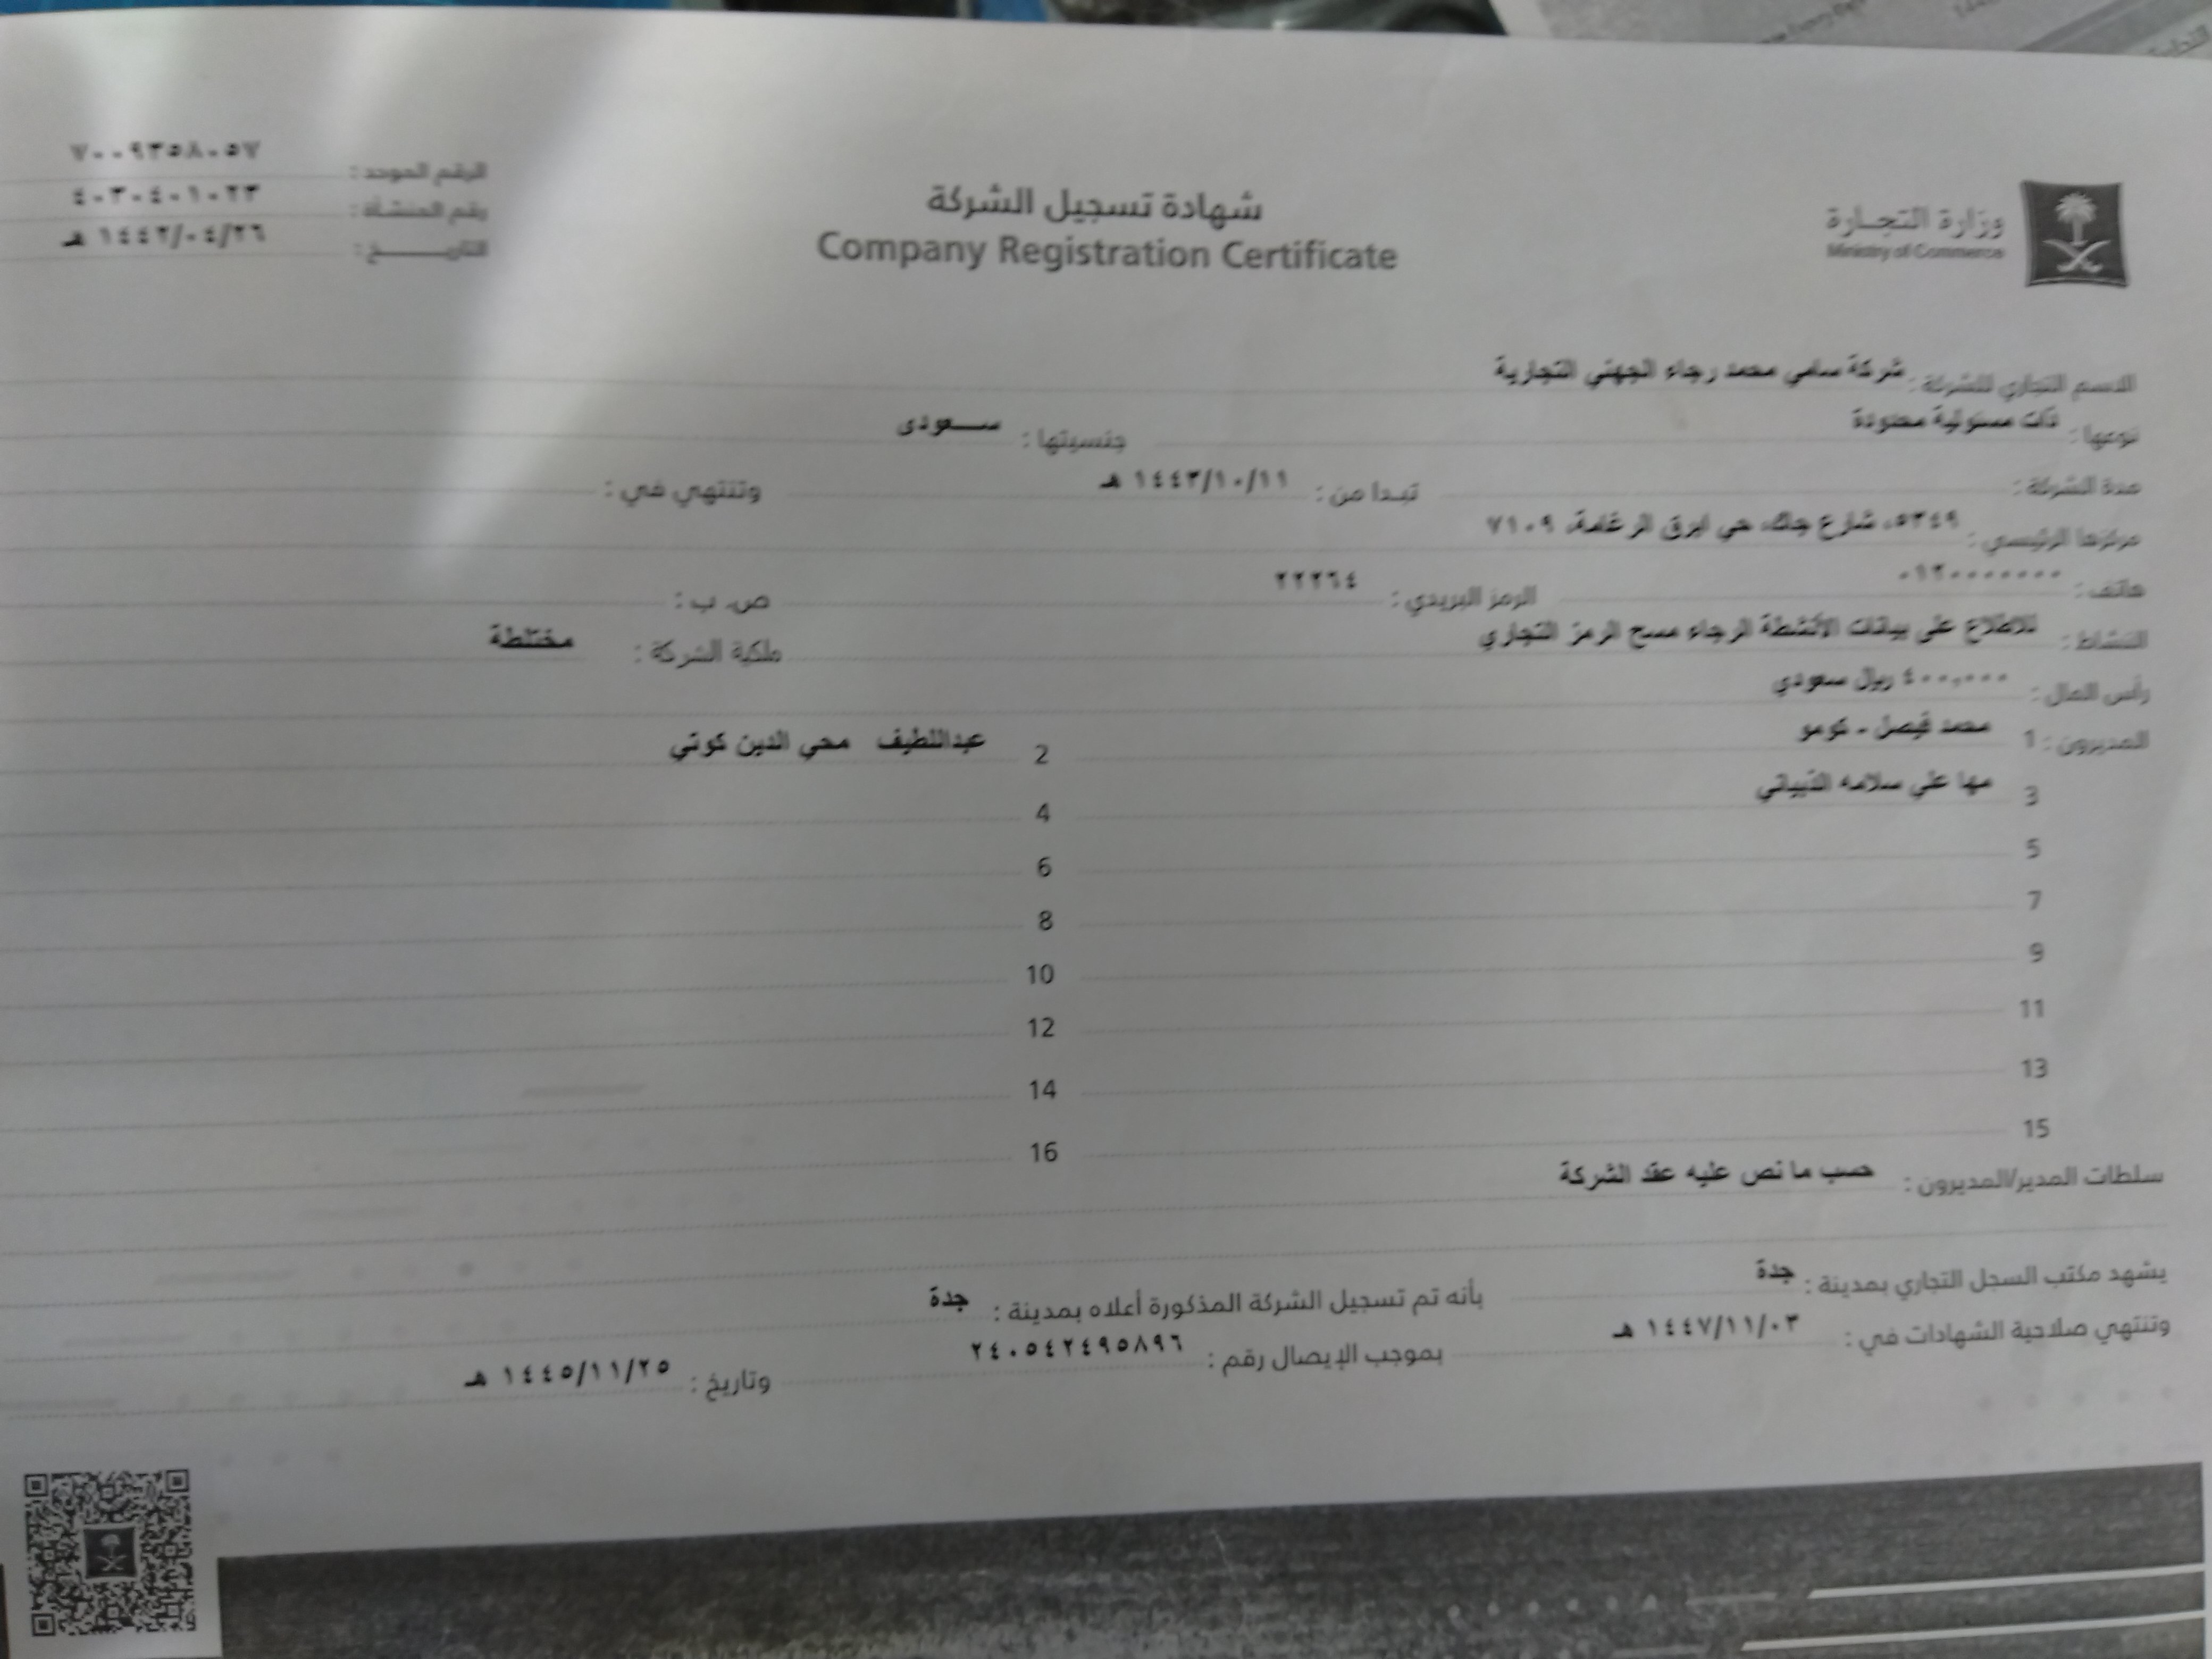 وزارة التجارة
Ministry of Commerce
شهادة تسجيل الشركة
Company Registration Certificate
الرقم الموحد : ٧٠٠٩٣٥٨٠٥٧
رقم المنشأة : ٤٠٣٠٤٠١٠٢٣
التاريـــــخ : ١٤٤٢/٠٤/٢٦ هـ
الاسم التجاري للشركة : شركة سامي محمد رجاء الجهني التجارية
نوعها : ذات مسئولية محدودة جنسيتها : ســـعودى
مدة الشركة : تبـدا من : ١٤٤٣/١٠/١١ هـ وتنتهي في :
مركزها الرئيسي : ٥٣٤٩، شارع جاك، حي ابرق الرغامة، ٧١٠٩
هاتف : ٠١٢٠٠٠٠٠٠٠ الرمز البريدي : ٢٢٢٦٤ ص. ب :
النشاط : للاطلاع على بيانات الأنشطة الرجاء مسح الرمز التجاري ملكية الشركة : مختلطة
رأس المال : ٤٠٠,٠٠٠ ريال سعودي
المديرون : 1 محمد فيصل - كومو 2 عبداللطيف محي الدين كوتي
3 مها علي سلامه 4
5 6
7 8
9 10
11 12
13 14
15 16
سلطات المدير/المديرون : حسب ما نص عليه عقد الشركة
يشهد مكتب السجل التجاري بمدينة : جدة بأنه تم تسجيل الشركة المذكورة أعلاه بمدينة : جدة
وتنتهي صلاحية الشهادات في : ١٤٤٧/١١/٠٣ هـ بموجب الإيصال رقم : ٢٤٠٥٤٢٤٩٥٨٩٦ وتاريخ : ١٤٤٥/١١/٢٥ هـ